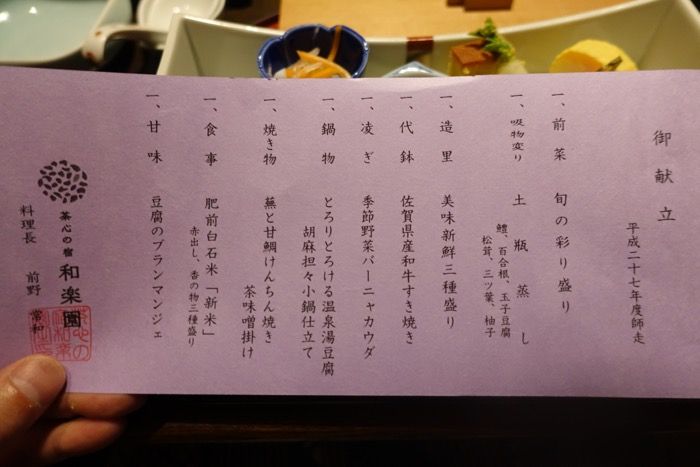 御献立
平成二十七年度師走
一、前菜 旬の彩り盛り
一、吸物変り 土瓶蒸し
鱧、百合根、玉子豆腐
松茸、三ツ葉、柚子
一、造里 美味新鮮三種盛り
一、代鉢 佐賀県産和牛すき焼き
一、凌ぎ 季節野菜バーニャカウダ
一、鍋物 とろりとろける温泉湯豆腐
胡麻担々小鍋仕立て
一、焼き物 蕪と甘鯛けんちん焼き
茶味噌掛け
一、食事 肥前白石米「新米」
赤出し、香の物三種盛り
一、甘味 豆腐のブランマンジェ
茶心の宿 和楽園
料理長 前野 常和